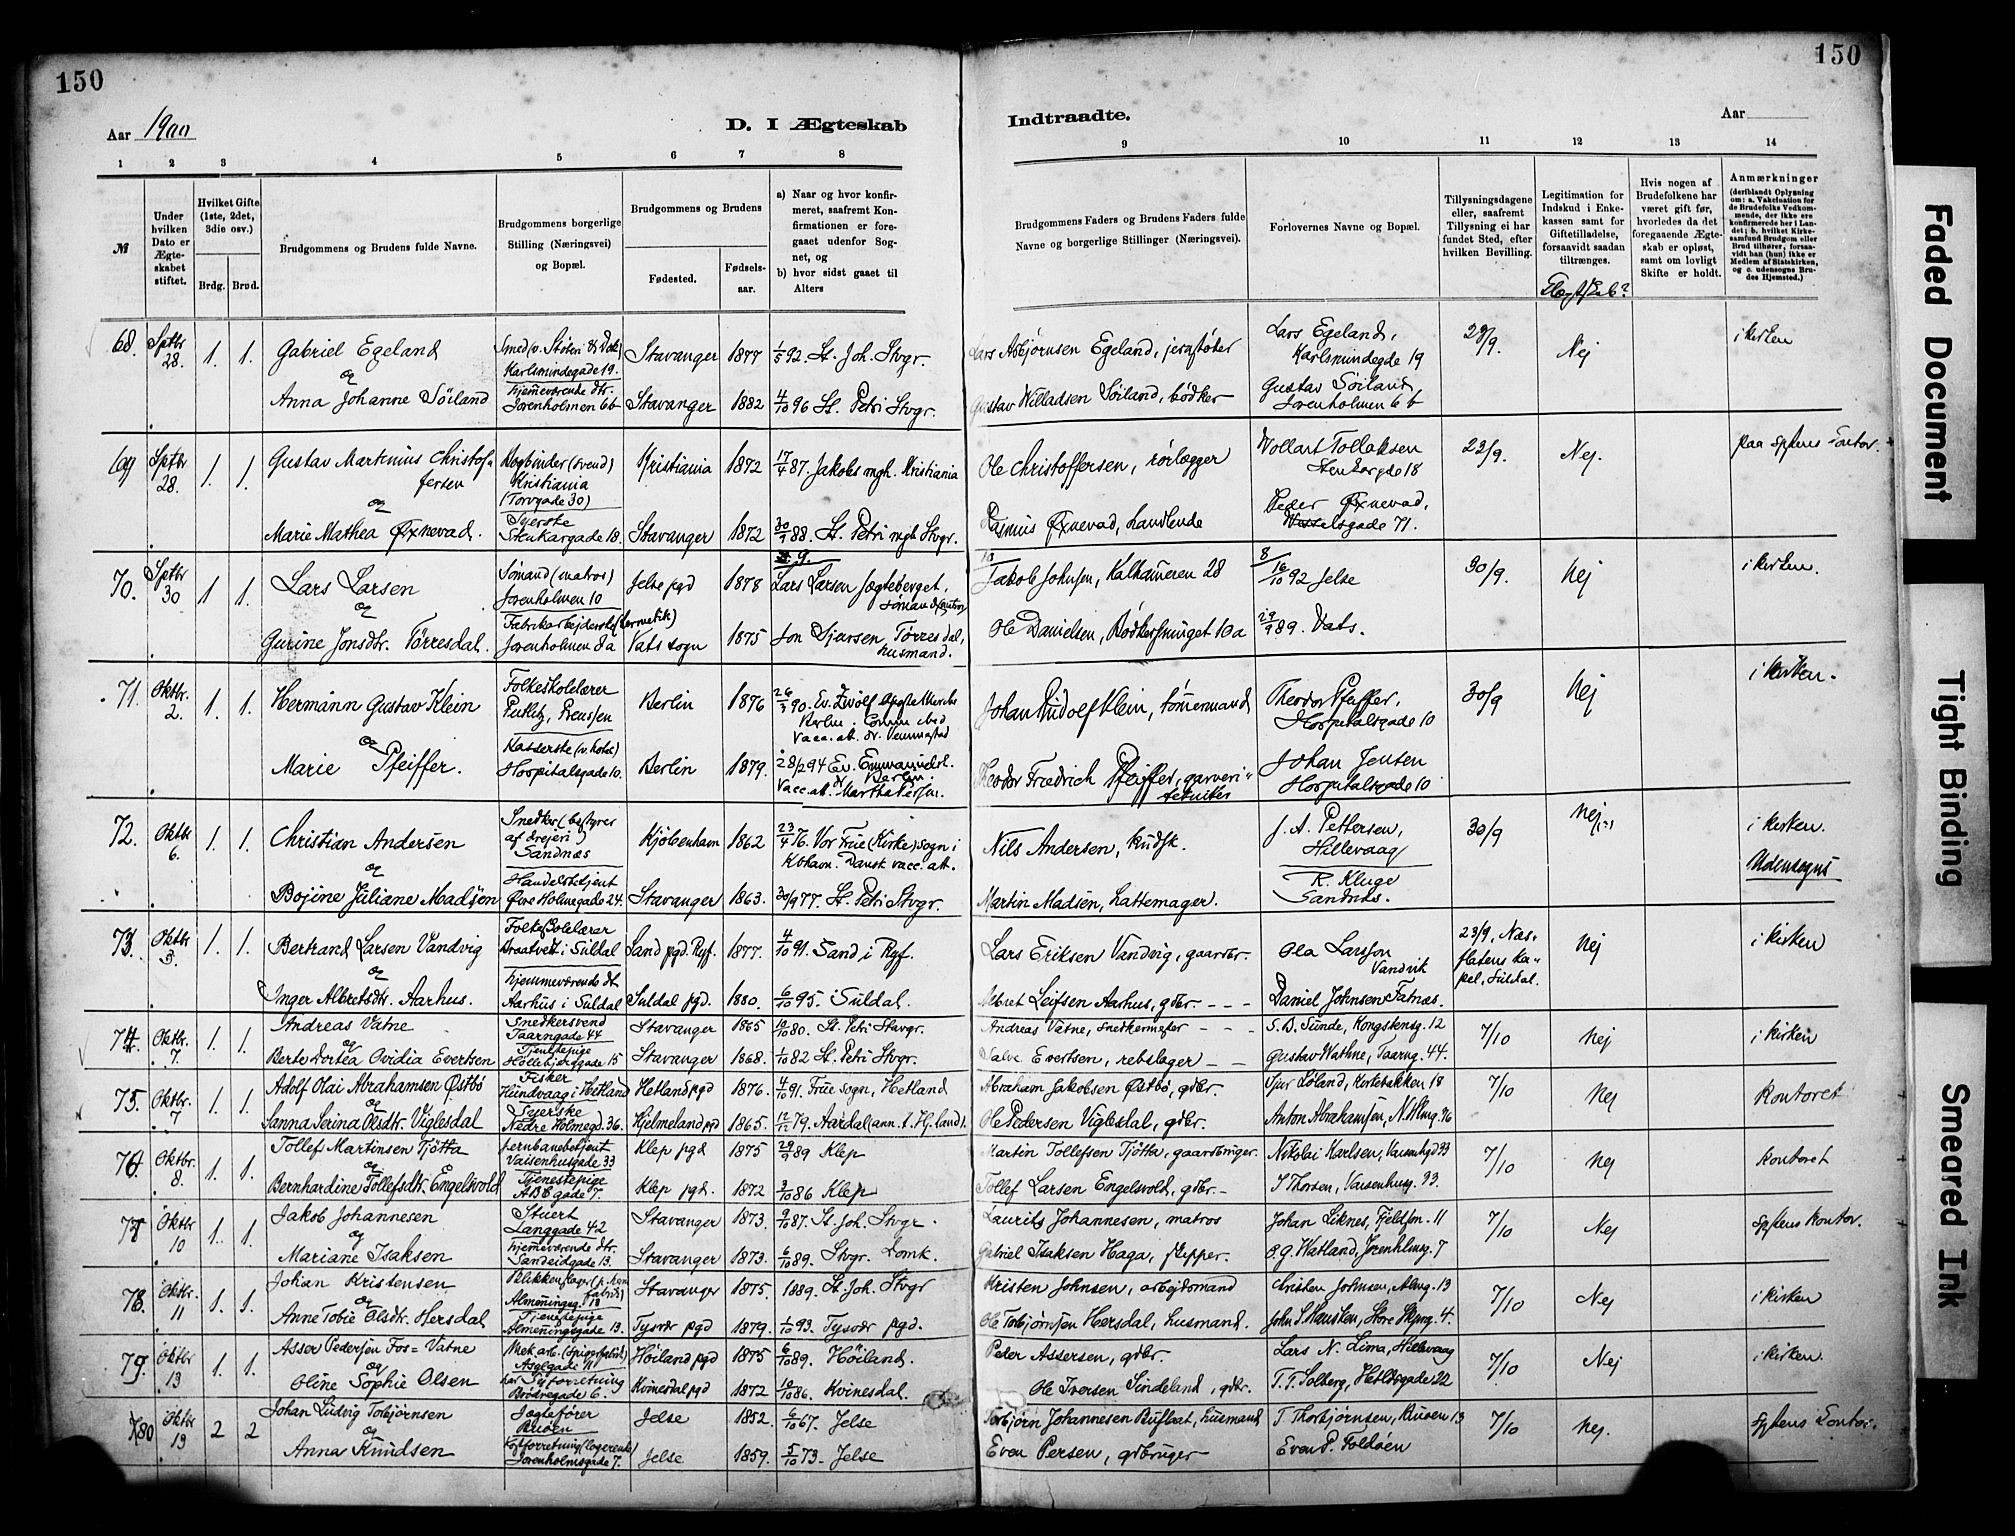 150
150
Aar 1900
D. I Ægteskab
Indtraadte.
Aar
1 2 3 4 5 6 7 8 9 10 11 12 13 14
№
Under hvilken Dato er Ægteskabet stiftet.
Hvilket Gifte (1ste, 2det, 3die osv.)
Brdg. Brud.
Brudgommens og Brudens fulde Navne.
Brudgommens borgerlige Stilling (Næringsvei) og Bopæl.
Brudgommens og Brudens
Fødested. Fødselsaar.
a) Naar og hvor konfirmeret, saafremt Konfirmationen er foregaaet udenfor Sognet, og
b) hvor sidst gaaet til Alters
Brudgommens Faders og Brudens Faders fulde Navne og borgerlige Stillinger (Næringsvei).
Forlovernes Navne og Bopæl.
Tillysningsdagene eller, saafremt Tillysning ei har fundet Sted, efter hvilken Bevilling.
Legitimation for Indskud i Enkekassen samt for Giftetilladelse, forsaavidt saadan tiltrænges.
Hvis nogen af Brudefolkene har været gift før, hvorledes da det foregaaende Ægteskab er opløst, samt om lovligt Skifte er holdt.
Anmærkninger
(deriblandt Oplysning om: a. Vakcination for de Brudefolks Vedkommende, der ikke ere konfirmerede her i Landet; b. hvilket Kirkesamfund Brudgom eller Brud tilhører, forsaavidt han (hun) ikke er Medlem af Statskirken, og c. udensogns Brudes Hjemsted.)
68. Sptbr 28. 1. 1. Gabriel Egeland
Karlsmindegade 19. Stavanger 1877 1/5 92. St. Joh. Stvgr.
Lars Asbjørnsen Egeland, jernstøber
Lars Egeland, Karlsmindegde 19
Nej i kirken
og
Anna Johanne Söiland hjemmeværende dtr. Jorenholmen 6b Stavanger 1882 4/10 96 St. Petri Stvgr.
Gustav Willadsen Söiland, bødker
Gustav Söiland Jorenholmen 6 b
69 Sptbr 28. 1. 1. Gustav Martinius Christoffersen
Bogbinder (svend) Kristiania (Torvgade 30) Kristiania 1872 17/4 87. Jakobs mgh. Kristiania
Ole Christoffersen, rørlægger
Tollaksen 18
23/9. Nej.
og
Marie Mathea Øxnevad. Syerske Stenkargade 18. Stavanger 1872 88. St. Petri mgh Stvgr.
Rasmus Øxnevad, handlende
Peder Øxnevad, Wesselsgade 71.
70. Sptbr 30 1 1. Lars Larsen
Sömand (matros) Jorenholmen 10 Jelse pgd 1878 Lars Larsen
Jakob Johnsen, Kalhammeren 28
16/10 92 Jelse
30/9. Nej i kirken.
og
Gurine Jonsdtr. Törresdal. Jorenholmen 8a Vats sogn 1875 Jon Törresdal, husmand.
Ole Danielsen, Bødkersmuget 10a
29/9 89. Vats.
71. Oktbr. 2. 1. 1. Hermann Gustav Klein
Folkeskolelærer Putlitz, Preussen Berlin 1876 90. Ev. Zwölf Berlin.
Johan Rudolf Klein, tömmermand
Theodor Pfeiffer, Hospitalsgade 10
30/9 Nej i kirken.
og
Marie Pfeiffer. Kasserske (v. hotel) Hospitalsgade 10. Berlin 1879. 28/2 94 Ev. Berlin.
Theodor Friedrich Pfeiffer, garveritekniker
Johan Jensen Hospitalsgade 10
72. Oktbr 6. 1. 1. Christian Andersen
Snedker (bestyrer af drejeri) Sandnæs Kjöbenhavn 1862 23/4 76. Vor Frue (Kirke) sogn i Kbhavn. Dansk vacc. att.
Nils Andersen, kudsk.
J. A. Pettersen, Hillevaag
30/9 Nej i kirken.
Udensogns
og
Bojine Juliane Madsen Handelsbetjent Övre Holmegade 24. Stavanger 1863. 30/9 77. St. Petri Stvgr.
Martin Madsen, hattemager.
R. Kluge Sandnæs.
73. Oktbr 3. 1. 1. Bertrand Larsen Vandvig
Folkeskolelærer i Suldal Sand pgd. Ryf. 1877. 4/10 91. Sand i Ryf.
Lars Eriksen Vandvig, gaardbr.
Ola Larsson Vandvik
23/9, Næsflatens kapel, Suldal. Nej i kirken
og
Inger Albretsdtr. Aarhus. hjemmeværende dt Aarhus i Suldal Suldal pgd. 1880. 6/10 95. i Suldal.
Albret Leifsen Aarhus, gdbr.
Daniel Johnsen Fatnæs.
74. Oktbr. 7. 1. 1. Andreas Vatne
Snedkersvend Taarngade 44 Stavanger 1865 10/10 80. St. Petri Stavgr.
Andreas Vatne, snedkermester
S. B. Sunde, Kongstensg. 12
7/10 Nej i kirken
og
Berte Dortea Ovidia Evertsen Tjenestepige 15 Stavanger 1868. 1/10 82 St. Petri Stvgr.
Salve Evertsen, rebslager
Gustav Wathne, Taarng. 44.
75. Oktbr. 7 1. 1. Adolf Olai Abrahamsen Østbö
Fisker Hundvaag i Hetland Hetland pgd 1876. 4/10 91. Frue sogn, Hetland
Abraham Jakobsen Østbö, gdbr.
Sjur Löland, Kortebakken 18
7/10 Nej Kontoret
og
Sanna Serina Olsdtr. Viglesdal Syerske Nedre Holmegd. 36. Hjelmeland pgd 1865. 12/12 79. Aardal (ann. t. Hj.land).
Ole Pedersen Viglesdal, gdbr.
Anton Abrahamsen, N. Hlmg. 36
76 Oktbr. 8. 1. 1. Tollef Martinsen Tjötta
Jernbanebetjent Vaisenhusgade 33 Klep pgd 1875 29/9 89 Klep
Martin Tollefsen Tjötta, gaardbruger.
Nikolai Karlsen, Vaisenhgd 33
7/10 Nej Kontoret
og
Bernhardine Tollefsdtr. Engelsvold Tjenestepige ABC gade 7. Klep pgd. 1872 3/10 86 Klep
Tollef Larsen Engelsvold, gdbr.
T Thorsen, Vaisenhusg. 33.
77 Oktbr 10 1. 1. Jakob Johannesen
Stuert Langgade 42 Stavanger 1873. 9/10 87. St. Joh. Stvgr.
Laurits Johannesen, matros
Johan Liknes, 11
7/10 Nej Spstens kontor.
og
Mariane Isaksen hjemmeværende dtr. Sandeidgade 13. Stavanger 1873. 6/10 89. Stvgr. Domk.
Gabriel Isaksen Haga, skipper.
O. G. Watland, 7
78. Oktbr. 11 1. 1. Johan Kristensen
Almeningsg. 13 Stavanger 1875. 1889. St. Joh. Stvgr
Kristen Johnsen, arbejdsmand
Christen Johnsen, Almng. 13
7/10 Nej i kirken
og
Anne Tobie Olsdtr. Hersdal Tjenestepige Almeningsgade 13. Tysvær pgd 1879. 1/10 93. Tysvær pgd.
Ole Torbjörnsen Hersdal, husmand.
John S. Hausken, Store 4.
79. Oktbr 13 1. 1. Asser Pedersen Fos-Vatne
Mek. arb. Höiland pgd 1875 6/10 89. Höiland.
Peder Assersen, gdbr.
Lars N. Lima, Hillevaag
7/10 Nej i kirken.
og
Oline Sophie Olsen har Syforretning 6. Kvinesdal pgd 1872 10/10 86. Kvinesdal.
Ole Iversen Sindeland, gdbr.
T. T. Solberg, 22
80 Oktbr 13 2 2 Johan Ludvig Torbjörnsen
Jægtefører Jelse 1852. 6/10 67. Jelse
Torbjörn Johannesen Buflaat, husmand
T. Thorbjörnsen, 13
7/10 Nej. Spstens kontor.
og
Anna Knudsen Jorenholmsgade 7. Jelse 1859. 5/10 73. Jelse
Even Persen, gdbruger
Even P. Foldöen
Faded Document
Tight Binding
Smeared Ink